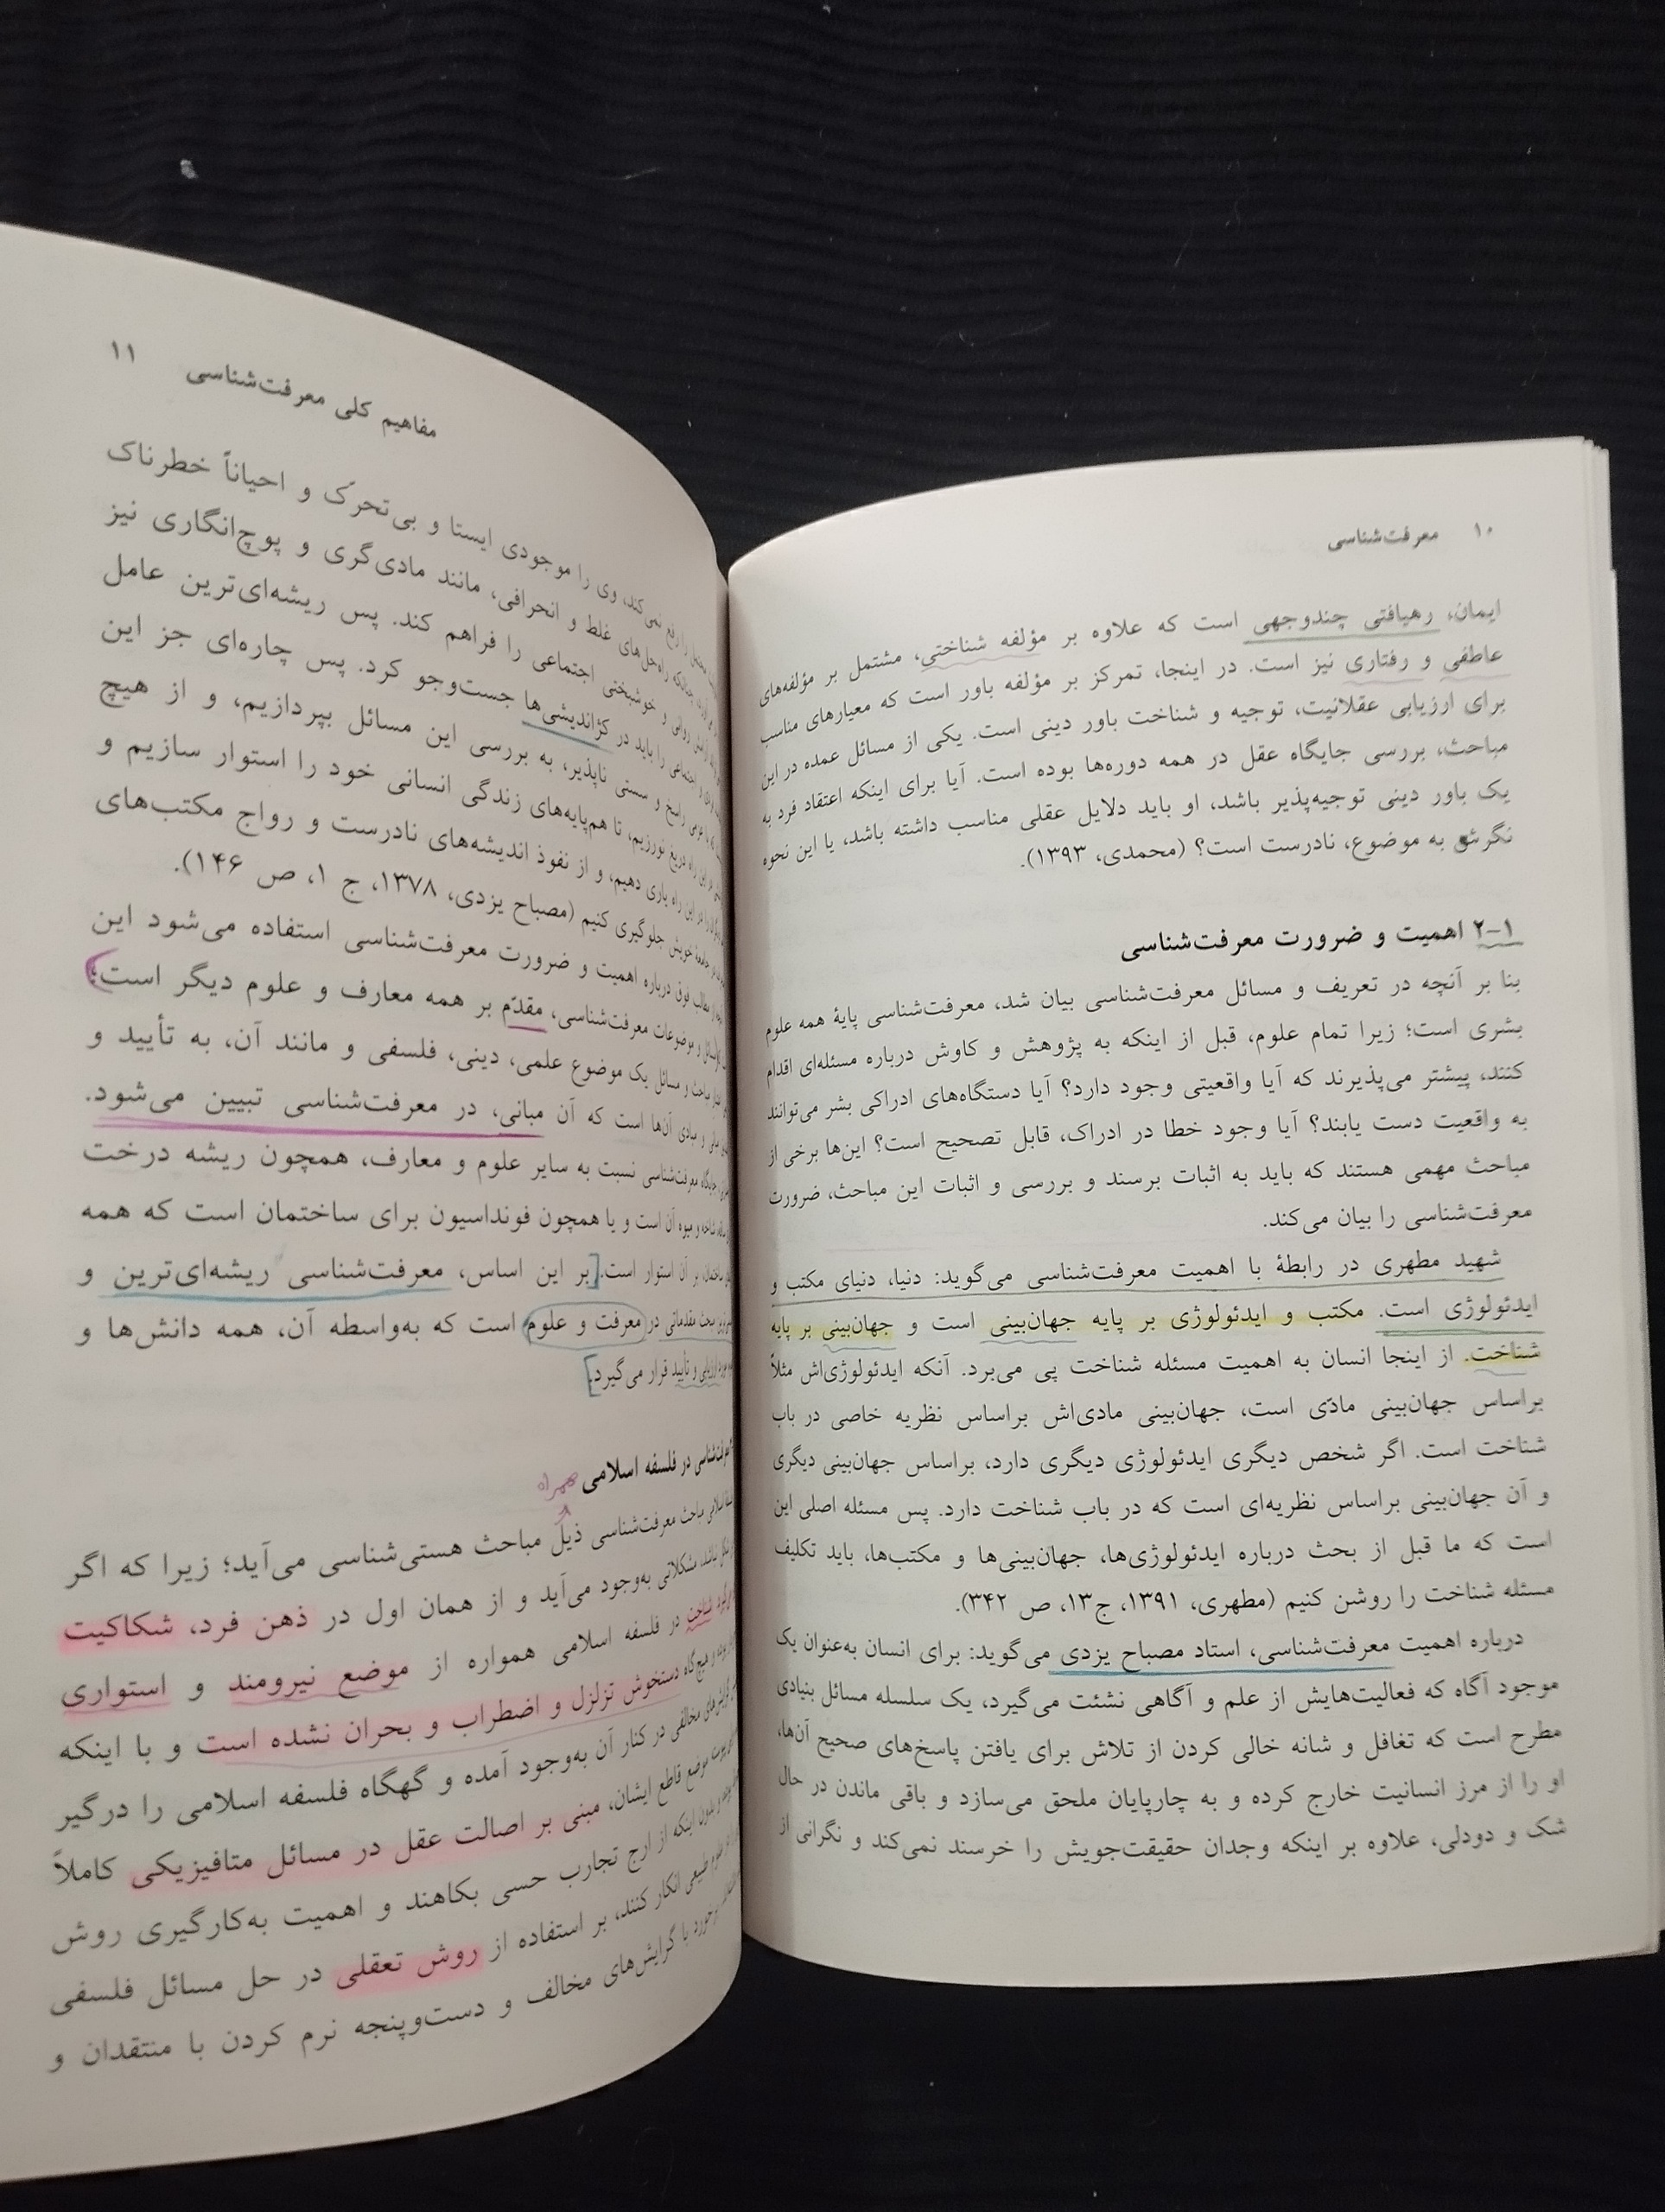 ۱۰ معرفت‌شناسی
ایمان، رهیافتی چندوجهی است که علاوه بر مؤلفه شناختی، مشتمل بر مؤلفه‌های
عاطفی و رفتاری نیز است. در اینجا، تمرکز بر مؤلفه باور است که معیارهای مناسب
برای ارزیابی عقلانیت، توجیه و شناخت باور دینی است. یکی از مسائل عمده در این
مباحث، بررسی جایگاه عقل در همه دوره‌ها بوده است. آیا برای اینکه اعتقاد فرد به
یک باور دینی توجیه‌پذیر باشد، او باید دلایل عقلی مناسب داشته باشد، یا این نحوه
نگرش به موضوع، نادرست است؟ (محمدی، ۱۳۹۳).
۲-۱ اهمیت و ضرورت معرفت‌شناسی
بنا بر آنچه در تعریف و مسائل معرفت‌شناسی بیان شد، معرفت‌شناسی پایهٔ همه علوم
بشری است؛ زیرا تمام علوم، قبل از اینکه به پژوهش و کاوش درباره مسئله‌ای اقدام
کنند، پیشتر می‌پذیرند که آیا واقعیتی وجود دارد؟ آیا دستگاه‌های ادراکی بشر می‌توانند
به واقعیت دست یابند؟ آیا وجود خطا در ادراک، قابل تصحیح است؟ این‌ها برخی از
مباحث مهمی هستند که باید به اثبات برسند و بررسی و اثبات این مباحث، ضرورت
معرفت‌شناسی را بیان می‌کند.
شهید مطهری در رابطهٔ با اهمیت معرفت‌شناسی می‌گوید: دنیا، دنیای مکتب و
ایدئولوژی است. مکتب و ایدئولوژی بر پایه جهان‌بینی است و جهان‌بینی بر پایه
شناخت. از اینجا انسان به اهمیت مسئله شناخت پی می‌برد. آنکه ایدئولوژی‌اش مثلاً
براساس جهان‌بینی مادّی است، جهان‌بینی مادی‌اش براساس نظریه خاصی در باب
شناخت است. اگر شخص دیگری ایدئولوژی دیگری دارد، براساس جهان‌بینی دیگری
و آن جهان‌بینی براساس نظریه‌ای است که در باب شناخت دارد. پس مسئله اصلی این
است که ما قبل از بحث درباره ایدئولوژی‌ها، جهان‌بینی‌ها و مکتب‌ها، باید تکلیف
مسئله شناخت را روشن کنیم (مطهری، ۱۳۹۱، ج۱۳، ص ۳۴۲).
درباره اهمیت معرفت‌شناسی، استاد مصباح یزدی می‌گوید: برای انسان به‌عنوان یک
موجود آگاه که فعالیت‌هایش از علم و آگاهی نشئت می‌گیرد، یک سلسله مسائل بنیادی
مطرح است که تغافل و شانه خالی کردن از تلاش برای یافتن پاسخ‌های صحیح آن‌ها،
او را از مرز انسانیت خارج کرده و به چارپایان ملحق می‌سازد و باقی ماندن در حال
شک و دودلی، علاوه بر اینکه وجدان حقیقت‌جویش را خرسند نمی‌کند و نگرانی از
مفاهیم کلی معرفت‌شناسی ۱۱
را رفع نمی‌کند، وی را موجودی ایستا و بی‌تحرّک و احیاناً خطرناک
راه‌حل‌های غلط و انحرافی، مانند مادی‌گری و پوچ‌انگاری نیز
روانی و خوشبختی اجتماعی را فراهم کند. پس ریشه‌ای‌ترین عامل
اجتماعی را باید در کژاندیشی‌ها جست‌وجو کرد. پس چاره‌ای جز این
راسخ و سستی ناپذیر، به بررسی این مسائل بپردازیم، و از هیچ
در این راه دریغ نورزیم، تا هم‌پایه‌های زندگی انسانی خود را استوار سازیم و
را در این راه یاری دهیم، و از نفوذ اندیشه‌های نادرست و رواج مکتب‌های
جامعهٔ خویش جلوگیری کنیم (مصباح یزدی، ۱۳۷۸، ج ۱، ص ۱۴۶).
از مطالب فوق درباره اهمیت و ضرورت معرفت‌شناسی استفاده می‌شود این
و موضوعات معرفت‌شناسی، مقدّم بر همه معارف و علوم دیگر است؛
مباحث و مسائل یک موضوع علمی، دینی، فلسفی و مانند آن، به تأیید و
و مبادی آن‌ها است که آن مبانی، در معرفت‌شناسی تبیین می‌شود.
جایگاه معرفت‌شناسی نسبت به سایر علوم و معارف، همچون ریشه درخت
شاخه و میوه آن است و یا همچون فونداسیون برای ساختمان است که همه
ساختمان بر آن استوار است. [بر این اساس، معرفت‌شناسی ریشه‌ای‌ترین و
بحث مقدماتی در معرفت و علوم است که به‌واسطه آن، همه دانش‌ها و
مورد ارزیابی و تأیید قرار می‌گیرد.]
معرفت‌شناسی در فلسفه اسلامی
همراه
اسلامی مباحث معرفت‌شناسی ذیل مباحث هستی‌شناسی می‌آید؛ زیرا که اگر
نباشد، مشکلاتی به‌وجود می‌آید و از همان اول در ذهن فرد، شکاکیت
شناخت در فلسفه اسلامی همواره از موضع نیرومند و استواری
هیچ‌گاه دستخوش تزلزل و اضطراب و بحران نشده است و با اینکه
گرایش‌های مخالفی در کنار آن به‌وجود آمده و گهگاه فلسفه اسلامی را درگیر
موضع قاطع ایشان، مبنی بر اصالت عقل در مسائل متافیزیکی کاملاً
بدون اینکه از ارج تجارب حسی بکاهند و اهمیت به‌کارگیری روش
علوم طبیعی انکار کنند، بر استفاده از روش تعقلی در حل مسائل فلسفی
برخورد با گرایش‌های مخالف و دست‌وپنجه نرم کردن با منتقدان و